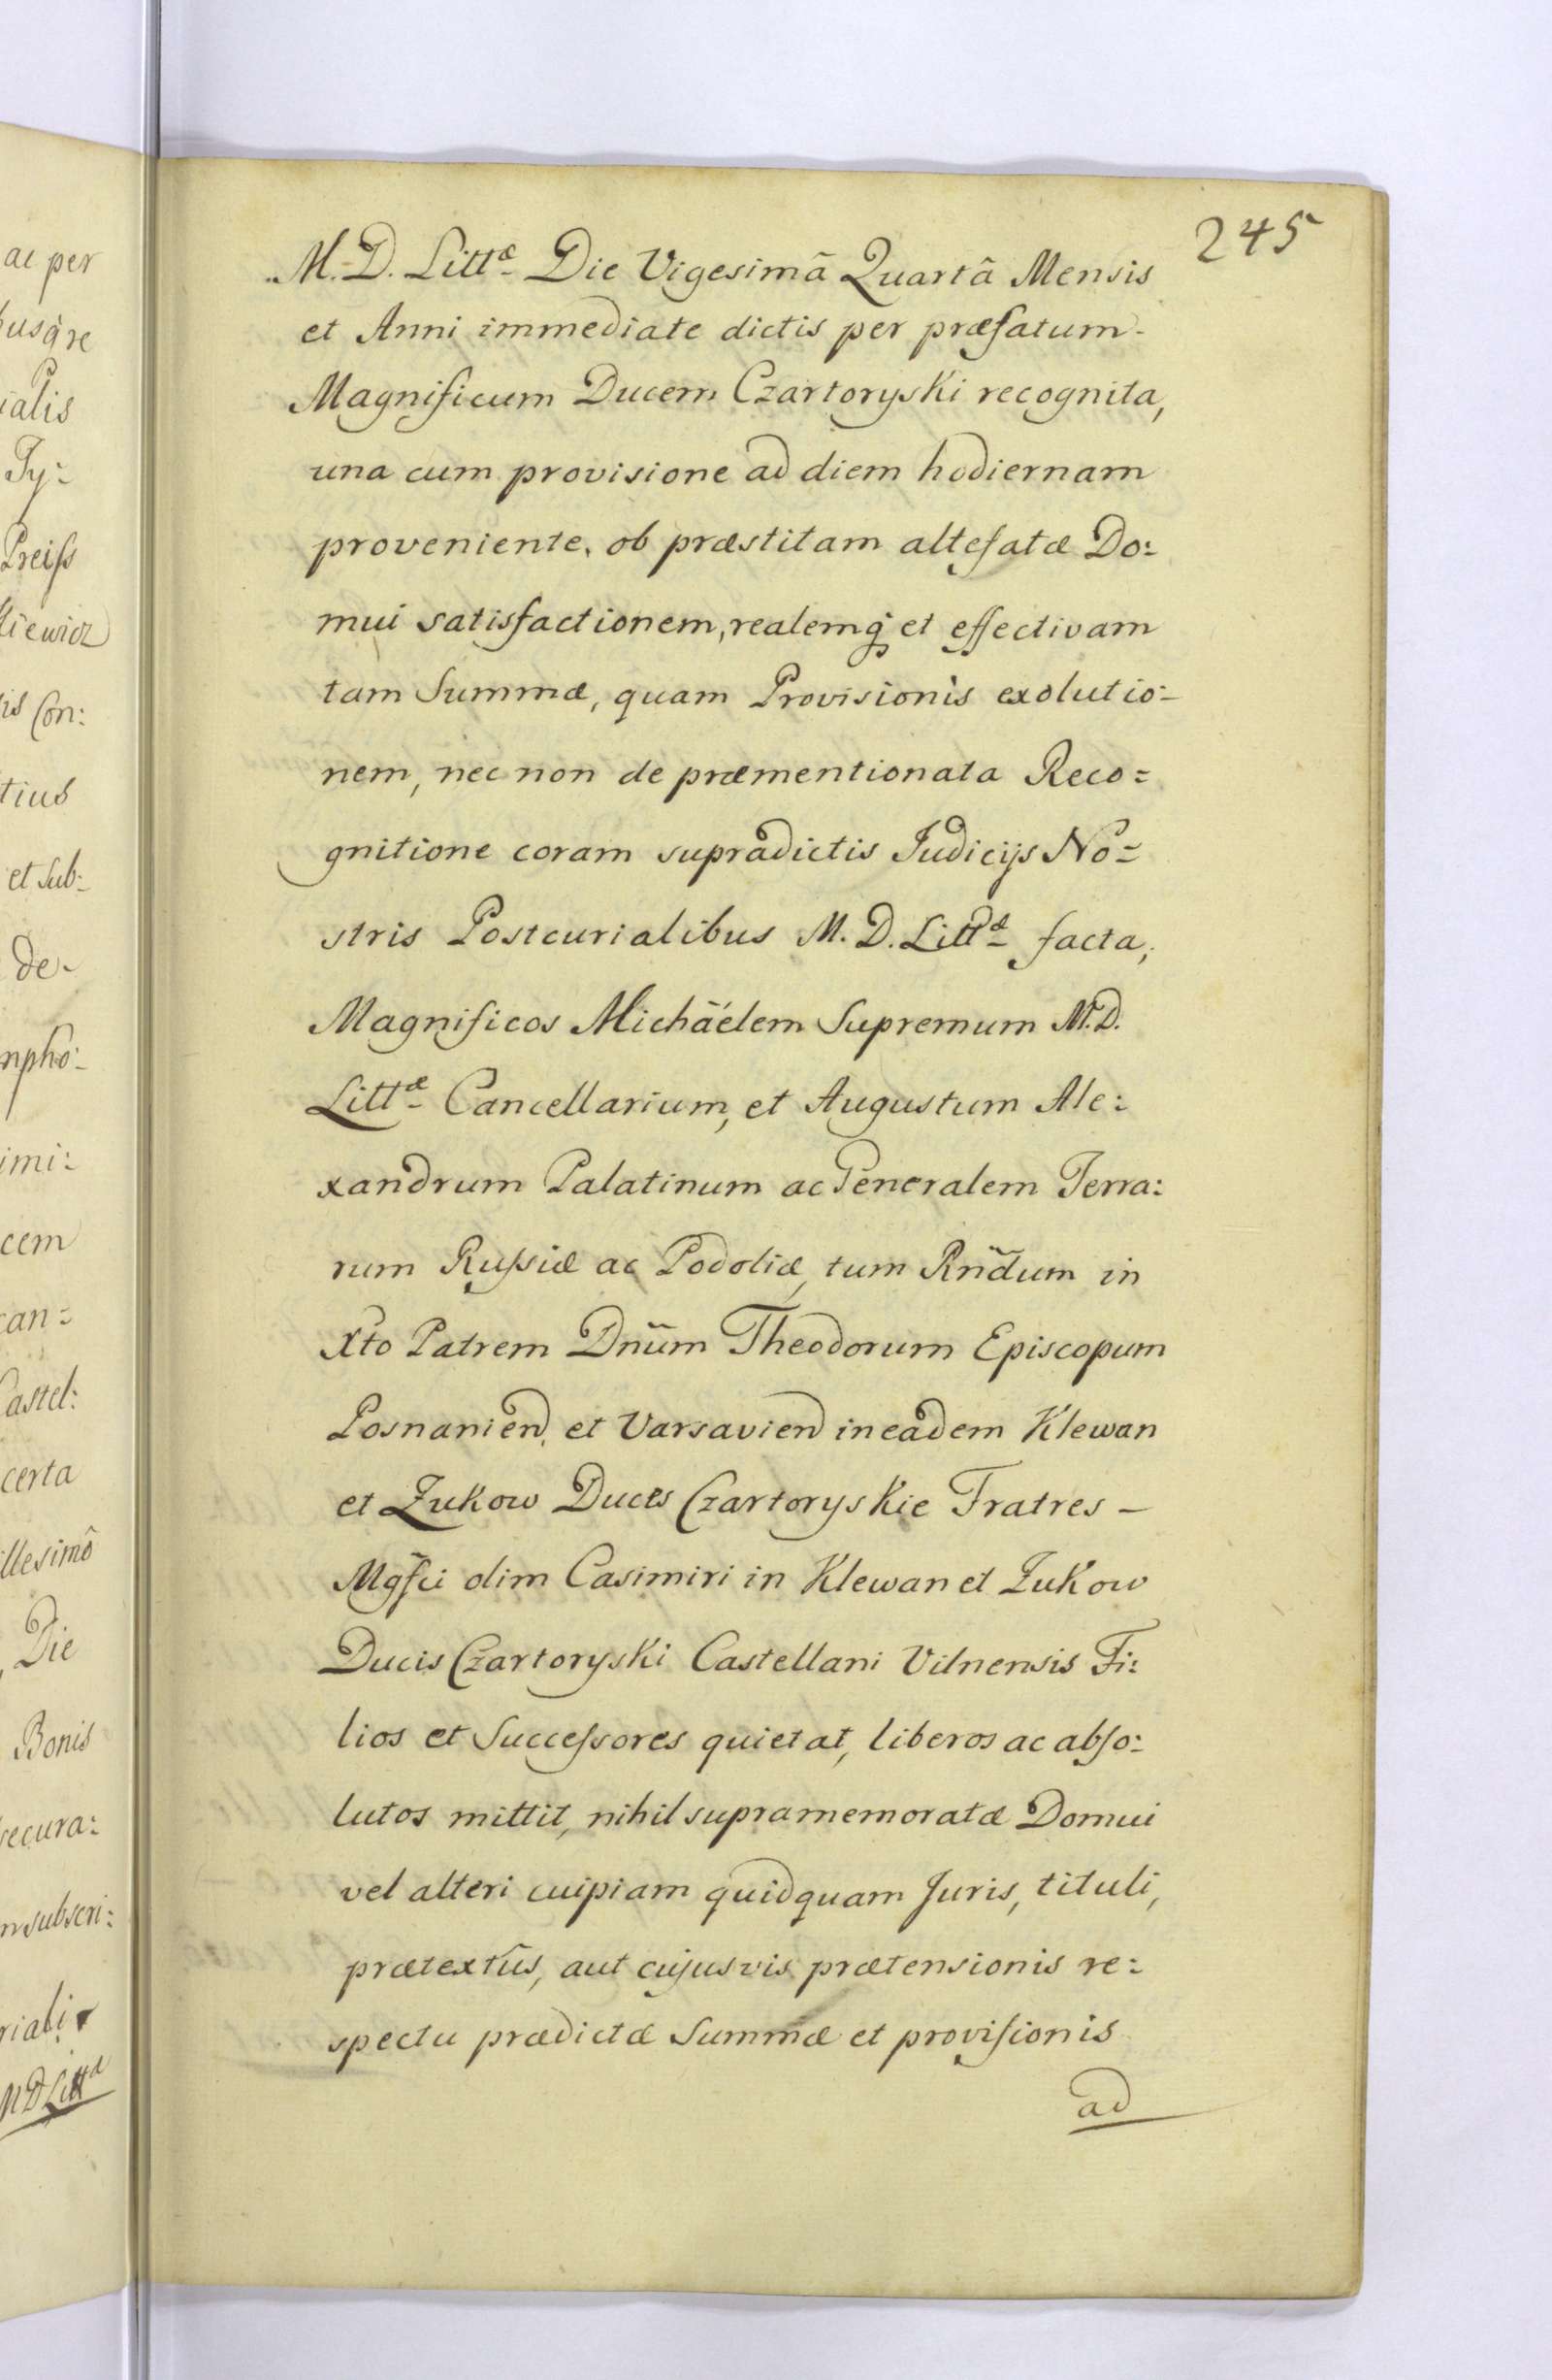 ac per
busq̀re
ialis
Ty:
Preiss
kiewicz
is Con:
tius
et Sub:
de-
npho:
imi:
cem
can:
Castel:
certa
illesimô
, Die
Bonis
secura:
nsubscri:
riali
MDLittæ
245
M. D. Littæ Die Vigesimâ Quartâ Mensis
et Anni immediate dictis per præfatum
Magnificum Ducem Czartoryski recognita,
una cum provisione ad diem hodiernam
proveniente, ob præstitam altefatæ Do:
mui satisfactionem, realemq̀ et effectivam
tam Summæ, quam Provisionis exolutio:
nem, nec non de præmentionata Reco:
gnitione coram supradictis Judicijs No:
stris Postcurialibus M. D. Littæ facta,
Magnificos Michäélem Supremum M.D.
Littæ Cancellarium, et Augustum Ale:
xandrum Palatinum ac Generalem Terra:
rum Russiæ ac Podoliæ, tum Rn̄dum in
Xto Patrem Dn̄um Theodorum Episcopum
Posnanień. et Varsavień in eâdem Klewan
et Zukow Duces Czartoryskie Fratres –
Mgf̄ci olim Casimiri in Klewan et Zukow
Ducis Czartoryski Castellani Vilnensis Fi:
lios et Successores quietat, liberos ac abso:
lutos mittit, nihil supramemoratæ Domui
vel alteri cuipiam quidquam Juris, tituli,
prætextûs, aut cujusvis prætensionis re:
spectu prædictæ Summæ et provisionis
ad